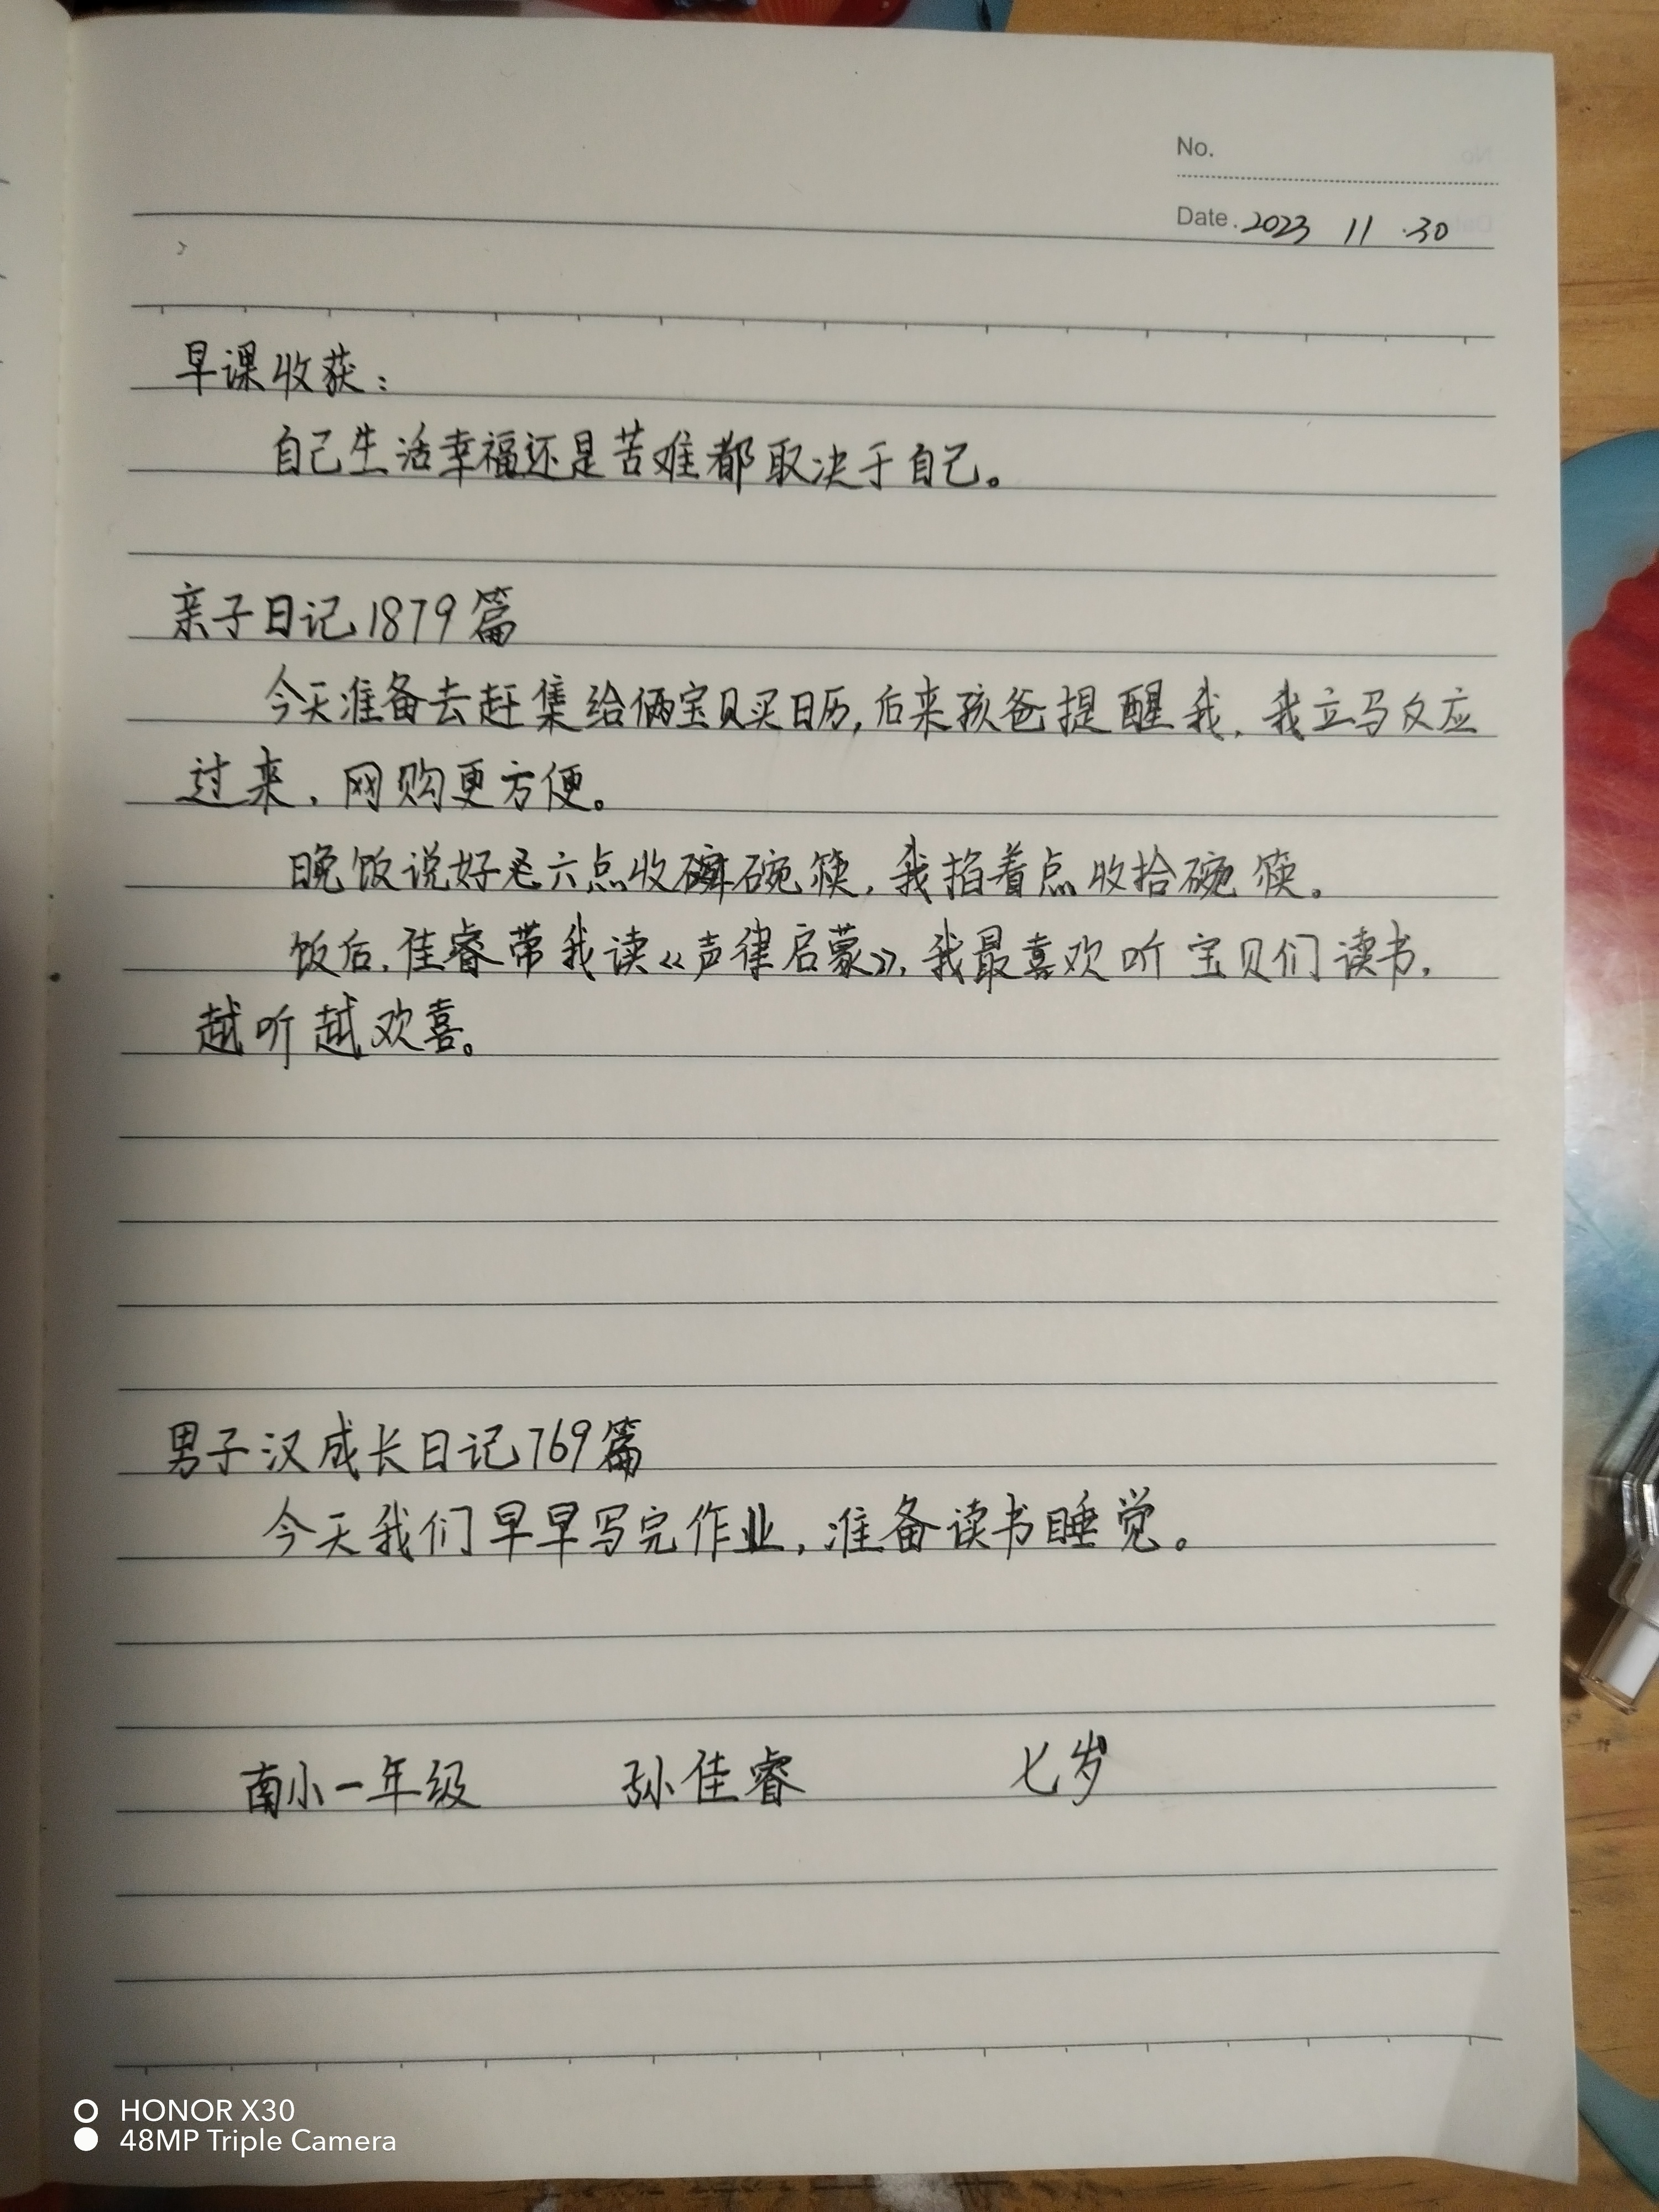 No.
Date. 2023 11 .30
早课收获：
自己生活幸福还是苦难都取决于自己。
亲子日记1879篇
今天准备去赶集给俩宝贝买日历,后来孩爸提醒我,我立马反应
过来,网购更方便。
晚饭说好六点收碗筷,我掐着点收拾碗筷。
饭后,佳睿带我读《声律启蒙》,我最喜欢听宝贝们读书,
越听越欢喜。
男子汉成长日记769篇
今天我们早早写完作业,准备读书睡觉。
南小一年级 孙佳睿 七岁
HONOR X30
48MP Triple Camera